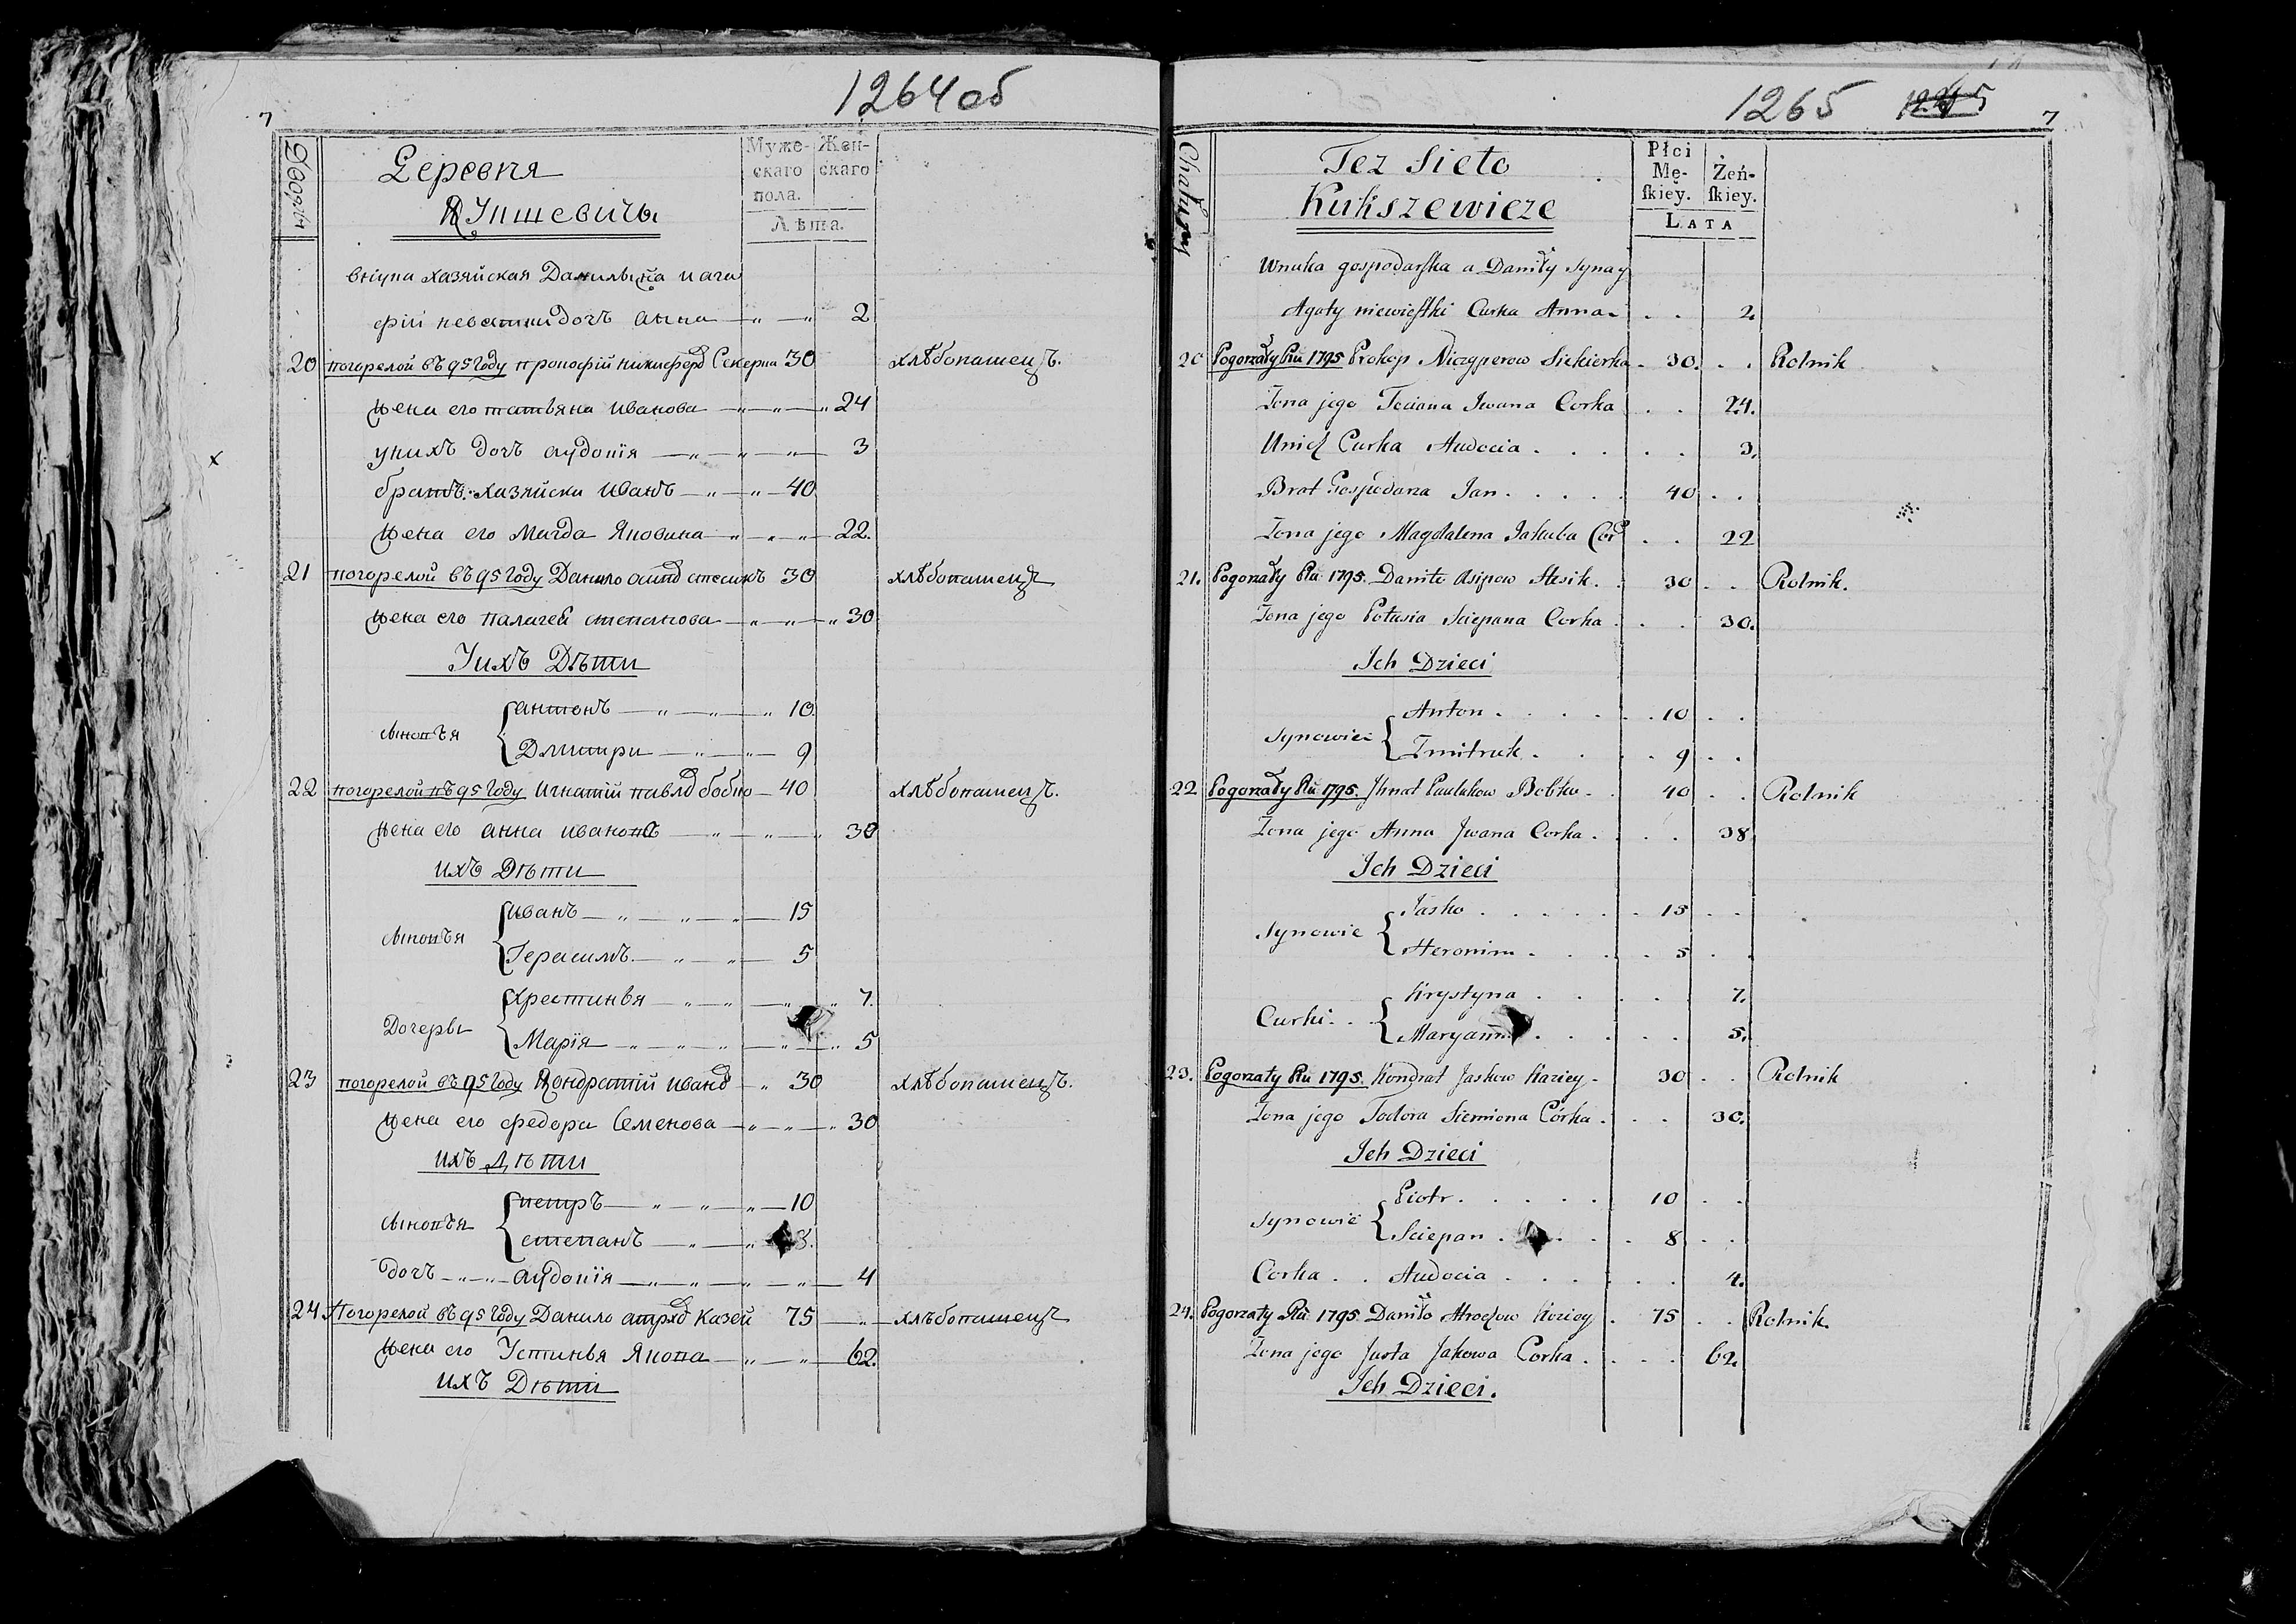 1264 об
7
Дворы
Деревня
Кукшевичы
Муже-
скаго
пола.
Жен-
скаго
Лѣта.
внука хазяйская Данилы
невестки дочъ анна 2
20 погорелой въ 95 Году прокофій никифоро Секерка 30 хлѣбопашецъ.
жена его татьяна иванова 24
у нихъ дочъ аудокія 3
братъ хазяйски иванъ 40
жена его Магда Яковина 22.
21 погорелой въ 95 Году Данило стесикъ 30 хлѣбопашецъ
жена его палагея степанова 30
Ихъ Дѣти
сыновъя
антонъ 10.
Дмитри 9
22 погорелой въ 95 Году игнатій павло бобко 40 хлѣбопашецъ.
жена его анна иванова 38
ихъ Дѣти
сыновъя
иванъ 15
Герасимъ 5
Дочеры
Хрестинья 7.
Марія 5
23 погорелой въ 95 Году Кондратій ивано 30 хлѣбопашецъ.
жена его федора Семенова 30
ихъ дѣти
сыновъя
петръ 10
степанъ 8.
дочъ аудокія 4
24 Погорелой въ 95 Году Данило Казей 75 хлѣбопашецъ
жена его Устинья Якова 62.
ихъ Дѣти
1265 1245
7
Chałupy
Też Sieło
Kukszewicze
Płci
Mę-
ſkiey.
Żeń-
ſkiey.
LATA
Wnuka gospodarſka a Daniły syna y
Agaty niewieſtki Curka Anna 2.
20 Pogorzały Ru 1795 Prokop Niczyperow Siekierka 30. Rolnik
Zona jego Teciana Jwana Corka 24.
U nich Curka Audocia 3.
Brat Gospodarza Jan 40
Zona jego Magdalena Jakuba Cor 22
21. Pogorzały Ru 1795. Daniło Asipow Stesik. 30 Rolnik.
Zona jego Połusia Sciepana Corka 30.
Jch Dzieci
Synowie
Anton 10
Zmitruk 9
22 Pogorzały Ru 1795. Jhnat Paulukow Bobko 40 Rolnik
Zona jego Anna Jwana Corka 38
Jch Dzieci
Synowie
Jasko 15
Heronim 5
Curki
Krystyna 7.
Maryanna 5.
23. Pogorzały Ru 1795. Kondrat Jaskow Kaziey 30 Rolnik
Zona jego Todora Siemiona Córka 30.
Jch Dzieci
Synowie
Piotr 10
Sciepan 8
Corka Audocia 4.
24. Pogorzały Ru 1795. Daniło Atrochow Kaziey 75 Rolnik.
Zona jego Justa Jakowa Corka 62.
Jch Dzieci.